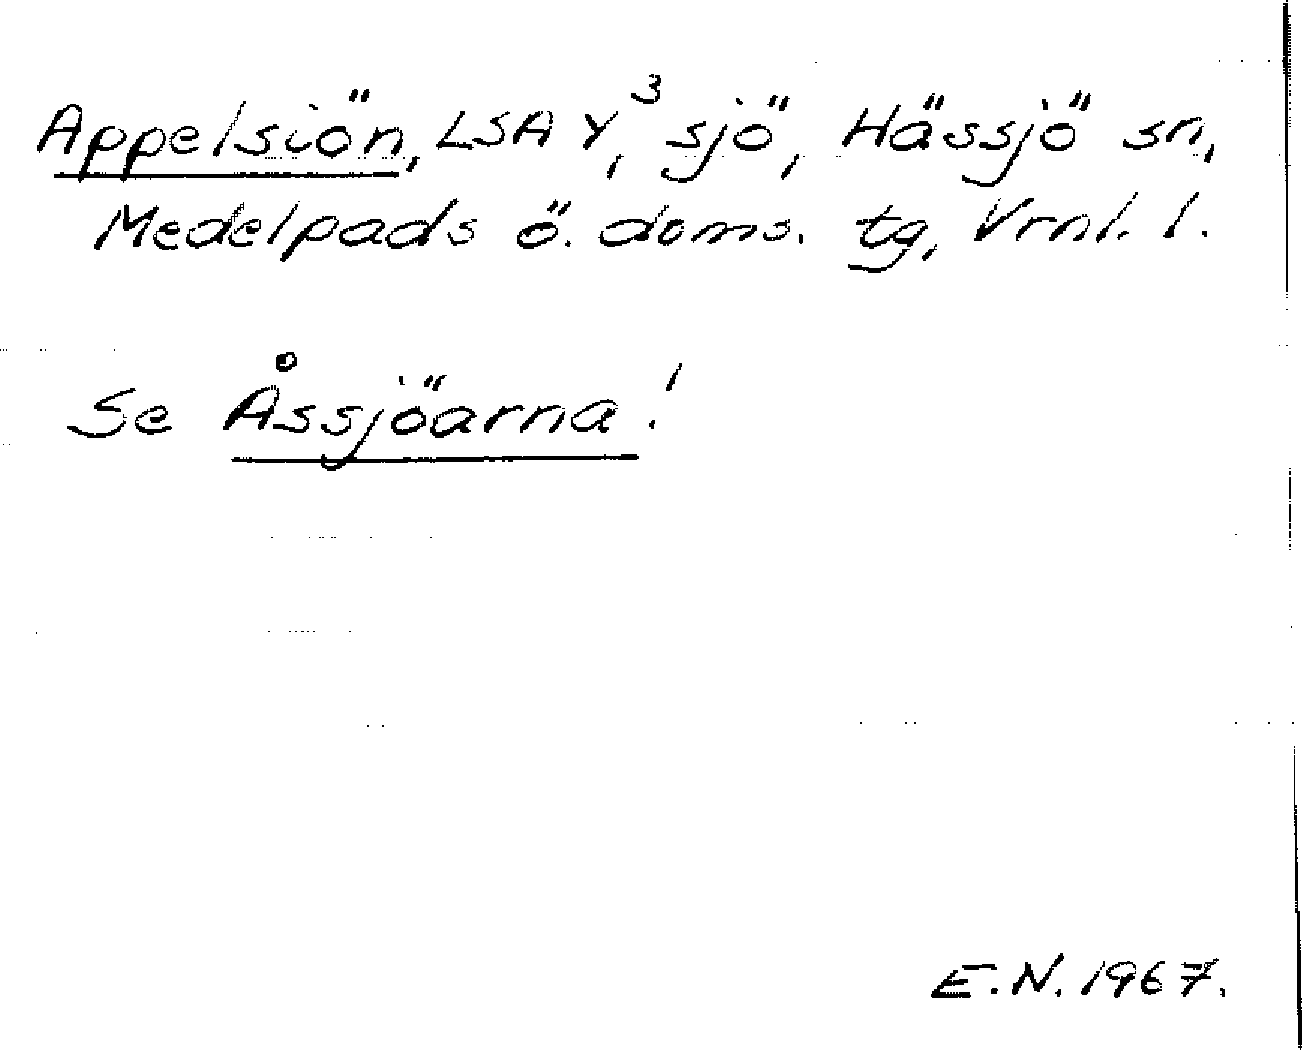 Appelsiön, LSA Y³, sjö, Hässjö sn,
Medelpads ö. doms. tg, Vrnl. l.
Se Åssjöarna!
E.N. 1967.